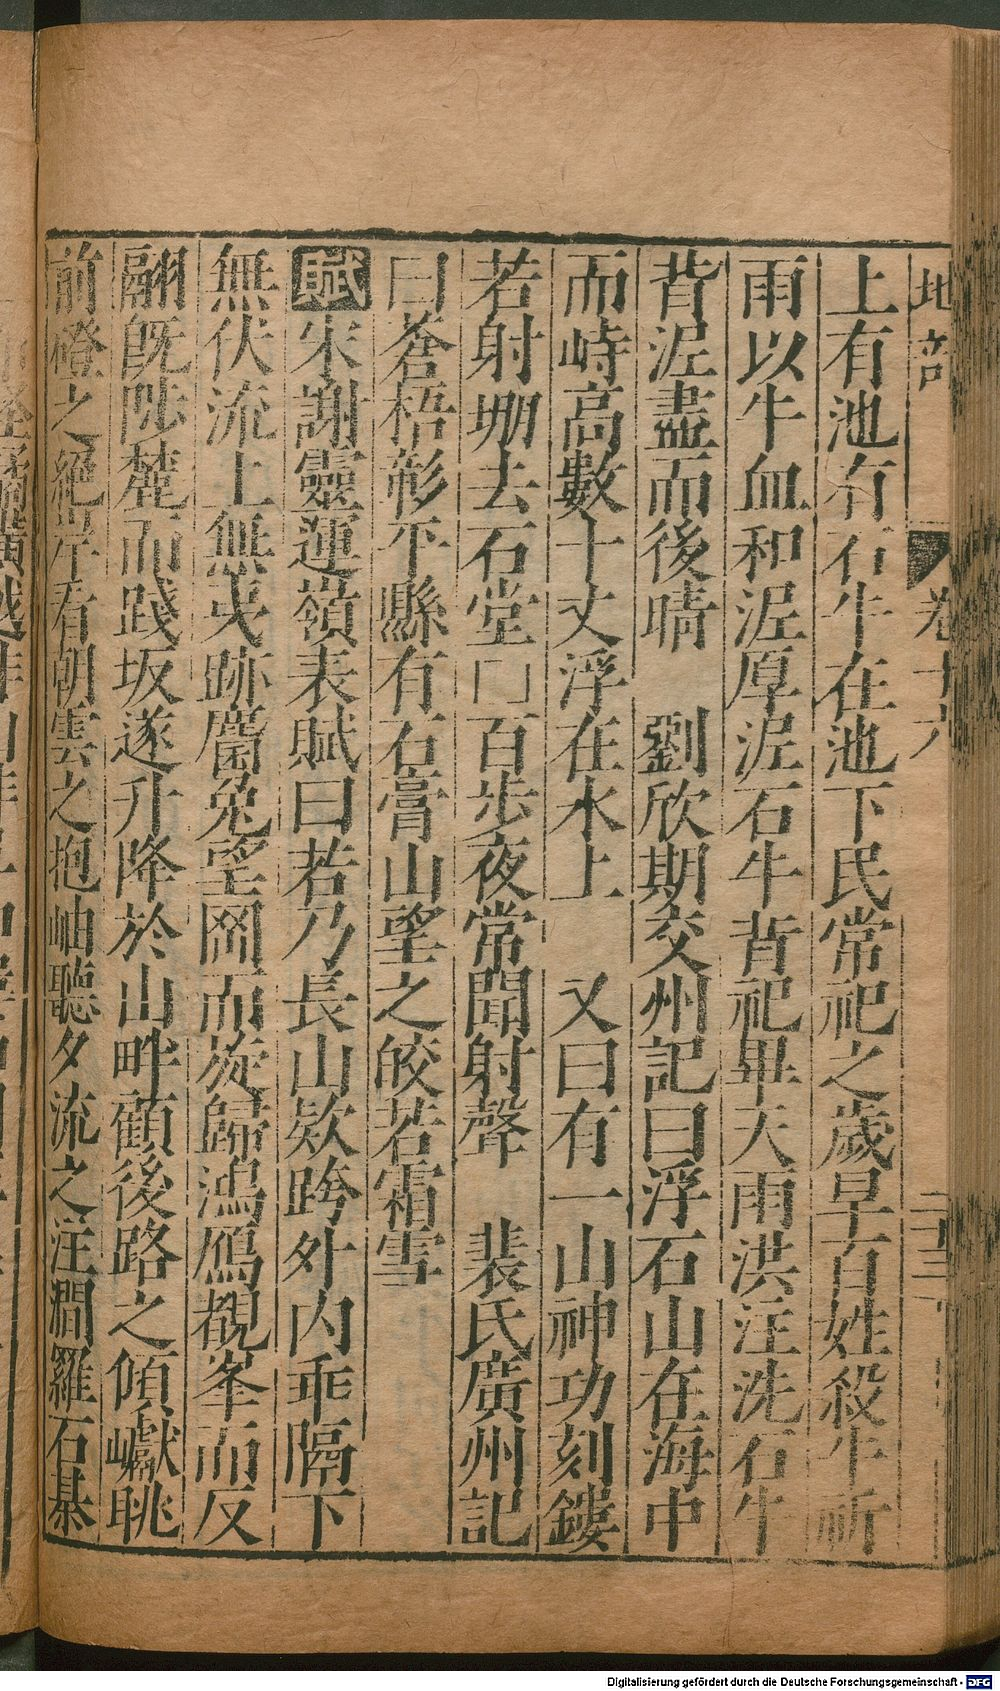 地部
卷十六
上有池有石牛在池下民常祀之歲旱百姓殺牛祈
雨以牛血和泥厚泥石牛背祀畢天雨洪注洗石牛
背泥盡而後晴　劉欣期交州記曰浮石山在海中
而峙高數十丈浮在水上　又曰有一山神功刻鏤
若射堋去石堂□百步夜常聞射聲　裴氏廣州記
曰蒼梧彰平縣有石膏山望之皎若霜雪
賦宋謝靈運嶺表賦曰若乃長山欵跨外內乖隔下
無伏流上無夷跡麕兔望岡而旋歸鴻鴈覩峯而反
翮旣陟麓而踐坂遂升降於山畔顧後路之傾巘眺
前磴之絕岸看朝雲之抱岫聽夕流之注澗羅石棊
Digitalisierung gefördert durch die Deutsche Forschungsgemeinschaft - DFG